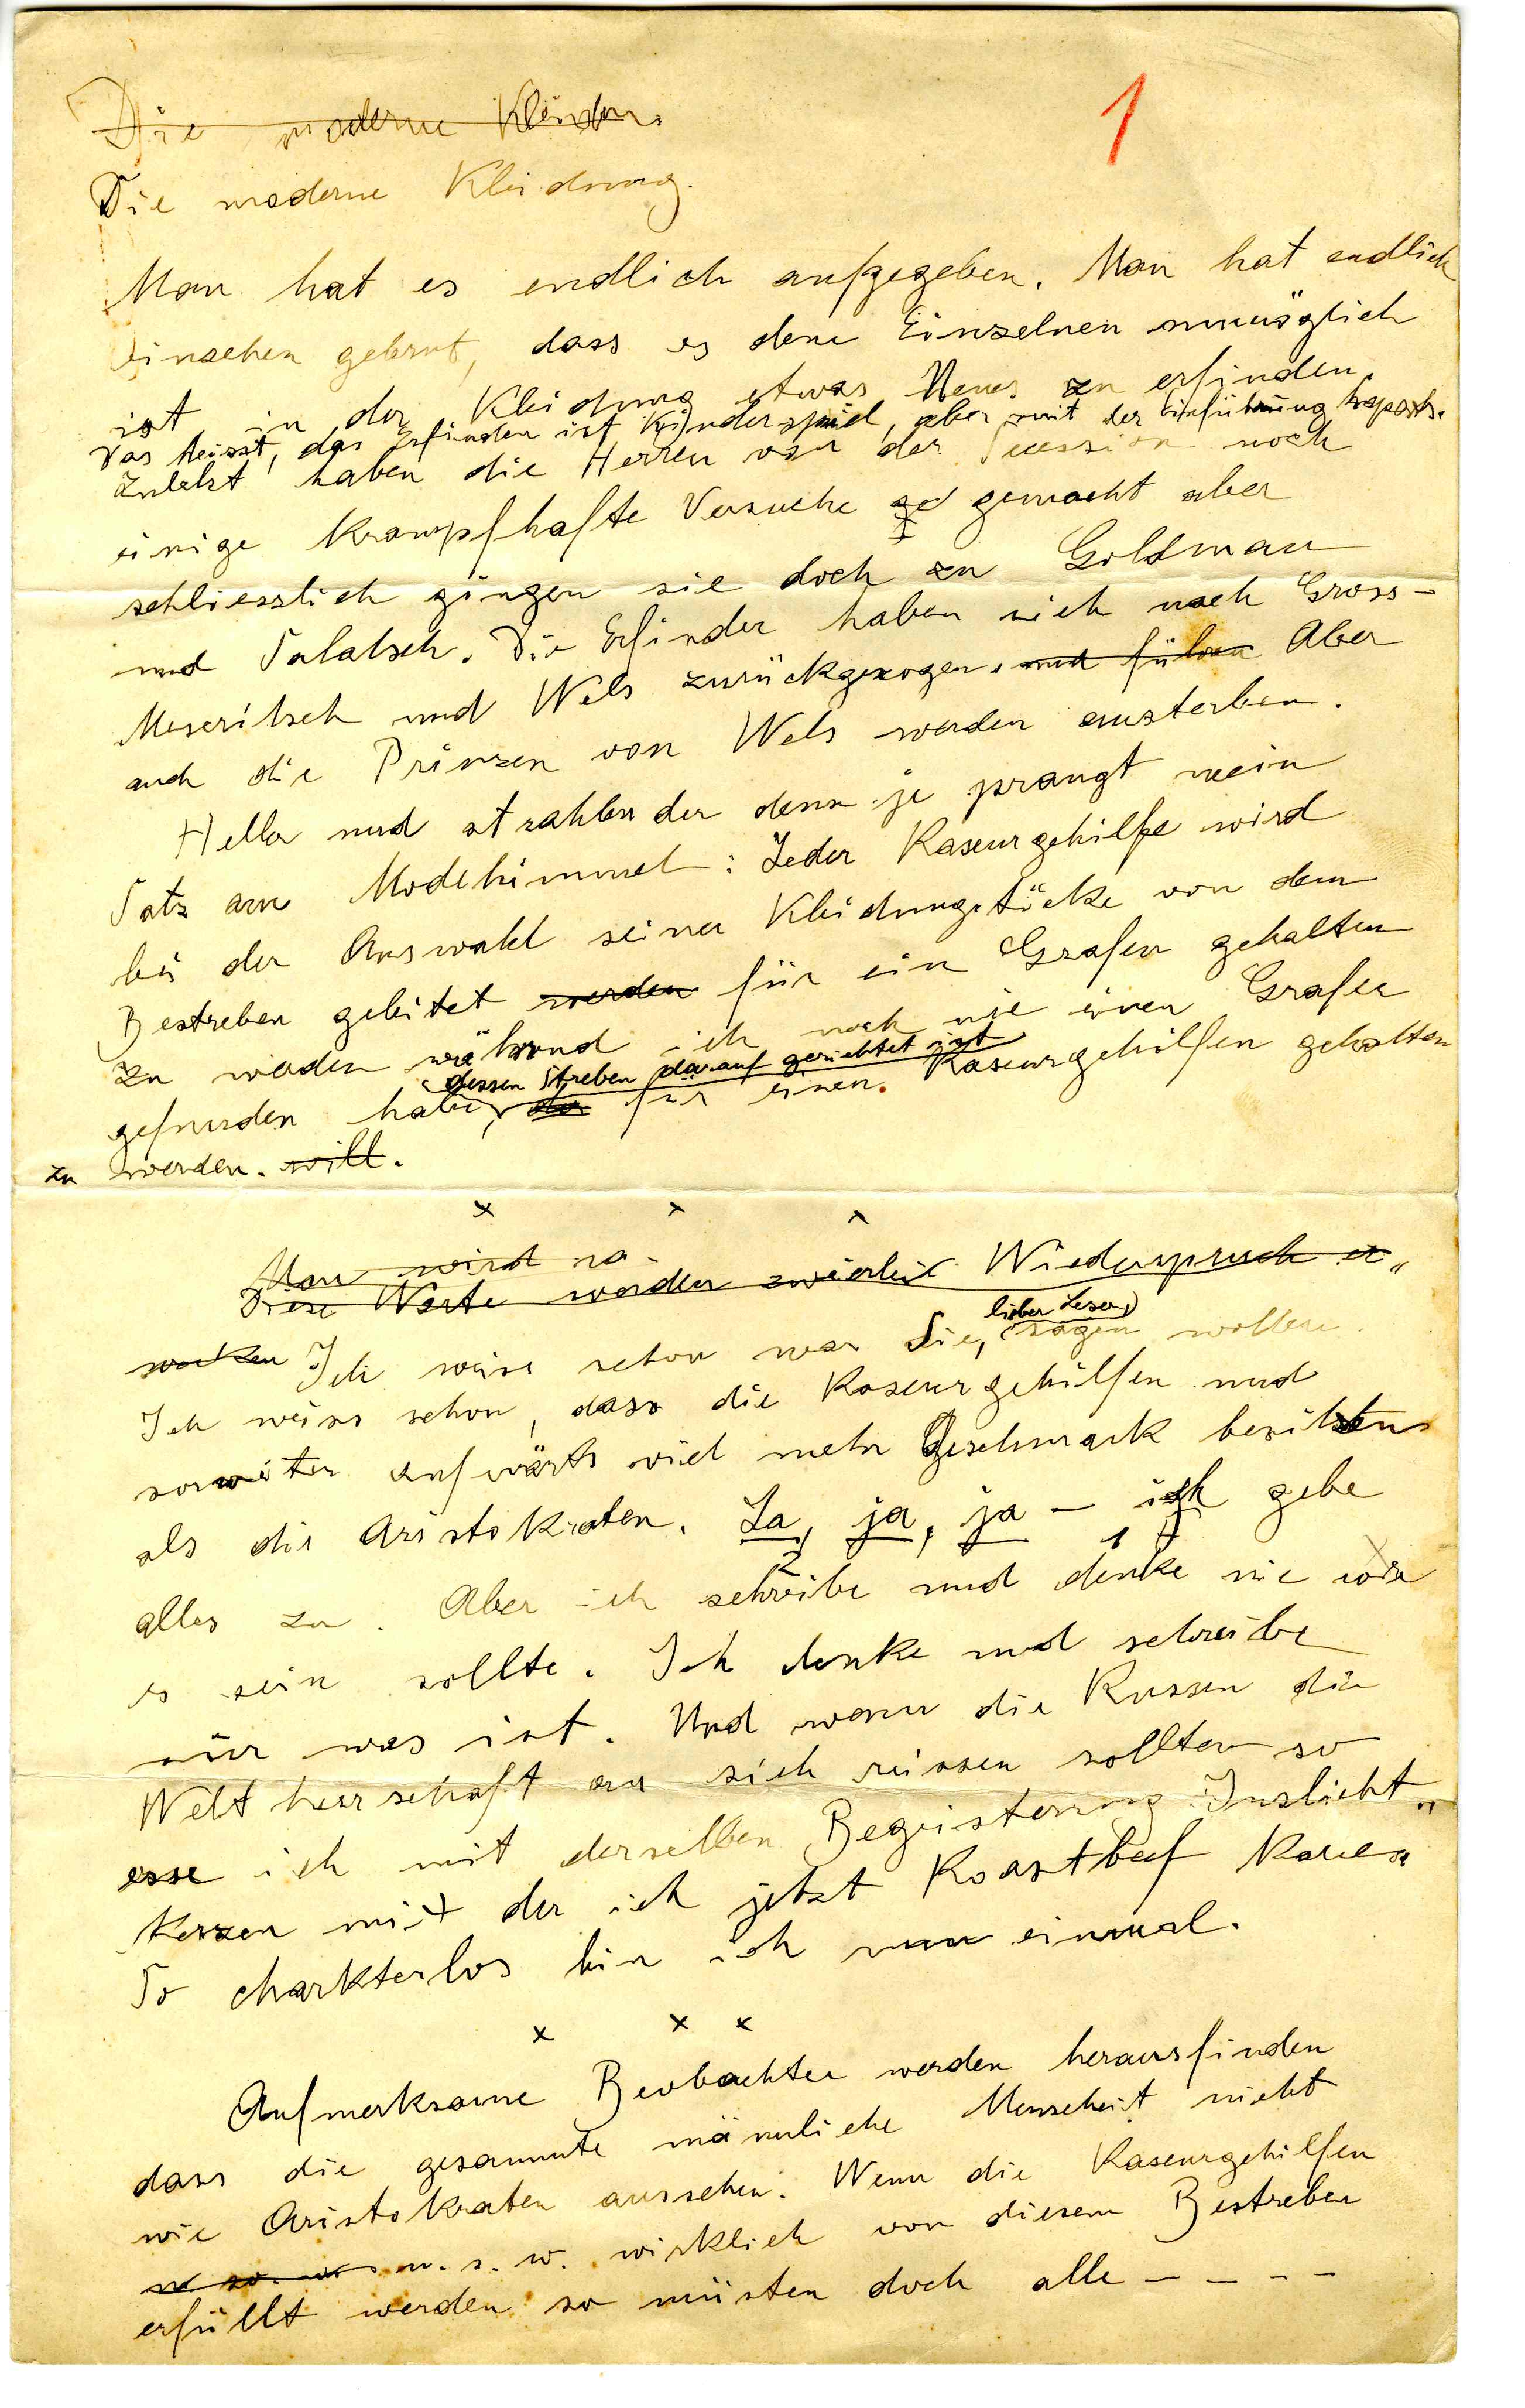 1
Die moderne Kleidun.
Die moderne Kleidung.
Man hat es endlich aufgegeben. Man hat endlich
einsehen gelernt, dass es dem Einzelnen unmöglich
ist in der Kleidung etwas Neues zu erfinden.
Das heisst, das Erfinden ist Kinderspiel, aber mit der Einführung haperts.
Zuletzt haben die Herren von der Secession noch
einige krampfhafte Versuche ge gemacht aber
schliesslich gingen sie doch zu Goldman
und Salatsch. Die Erfinder haben sich nach Gross-
Meseritsch und Wels zurückgezogen. und führen Aber
auch die Prinzen von Wels werden aussterben.
Heller und strahlender denn je prangt mein
Satz am Modehimmel: Jeder Raseurgehilfe wird
bei der Auswahl seiner Kleidungstücke von dem
Bestreben geleitet werden für ein Grafen gehalten
zu werden während ich noch nie einen Grafen
dessen Streben darauf gerichtet ist
gefunden habe, der für einen Raseurgehilfen gehalten
zu werden. will.
x x x
Man wird na
Diese Worte werden zweierlei Wiederspruch er„
lieber Leser,
wecken Ich weiss schon was Sie, sagen wollen.
Ich weiss schon, dass die Raseurgehilfen und
soweiter aufwärts viel mehr Geschmack besitzen
als die Aristokraten. Ja, ja, ja – ich gebe
2 1
alles zu. Aber ich schreibe und denke nie wie
es sein sollte. Ich denke und schreibe
nur was ist. Und wenn die Russen die
Weltherrschaft an sich reissen sollten so
esse ich mit derselben Begeisterung Inslicht„
kerzen mit der ich jetzt Roastbeef kaue.
So charkterlos bin ich nun einmal.
x x x
Aufmerksame Beobachter werden herausfinden
dass die gesammte männliche Menscheit nicht
wie Aristokraten aussehen. Wenn die Raseurgehilfen
u. s. w. wirklich von diesem Bestreben
erfüllt werden so müsten doch alle – – – –